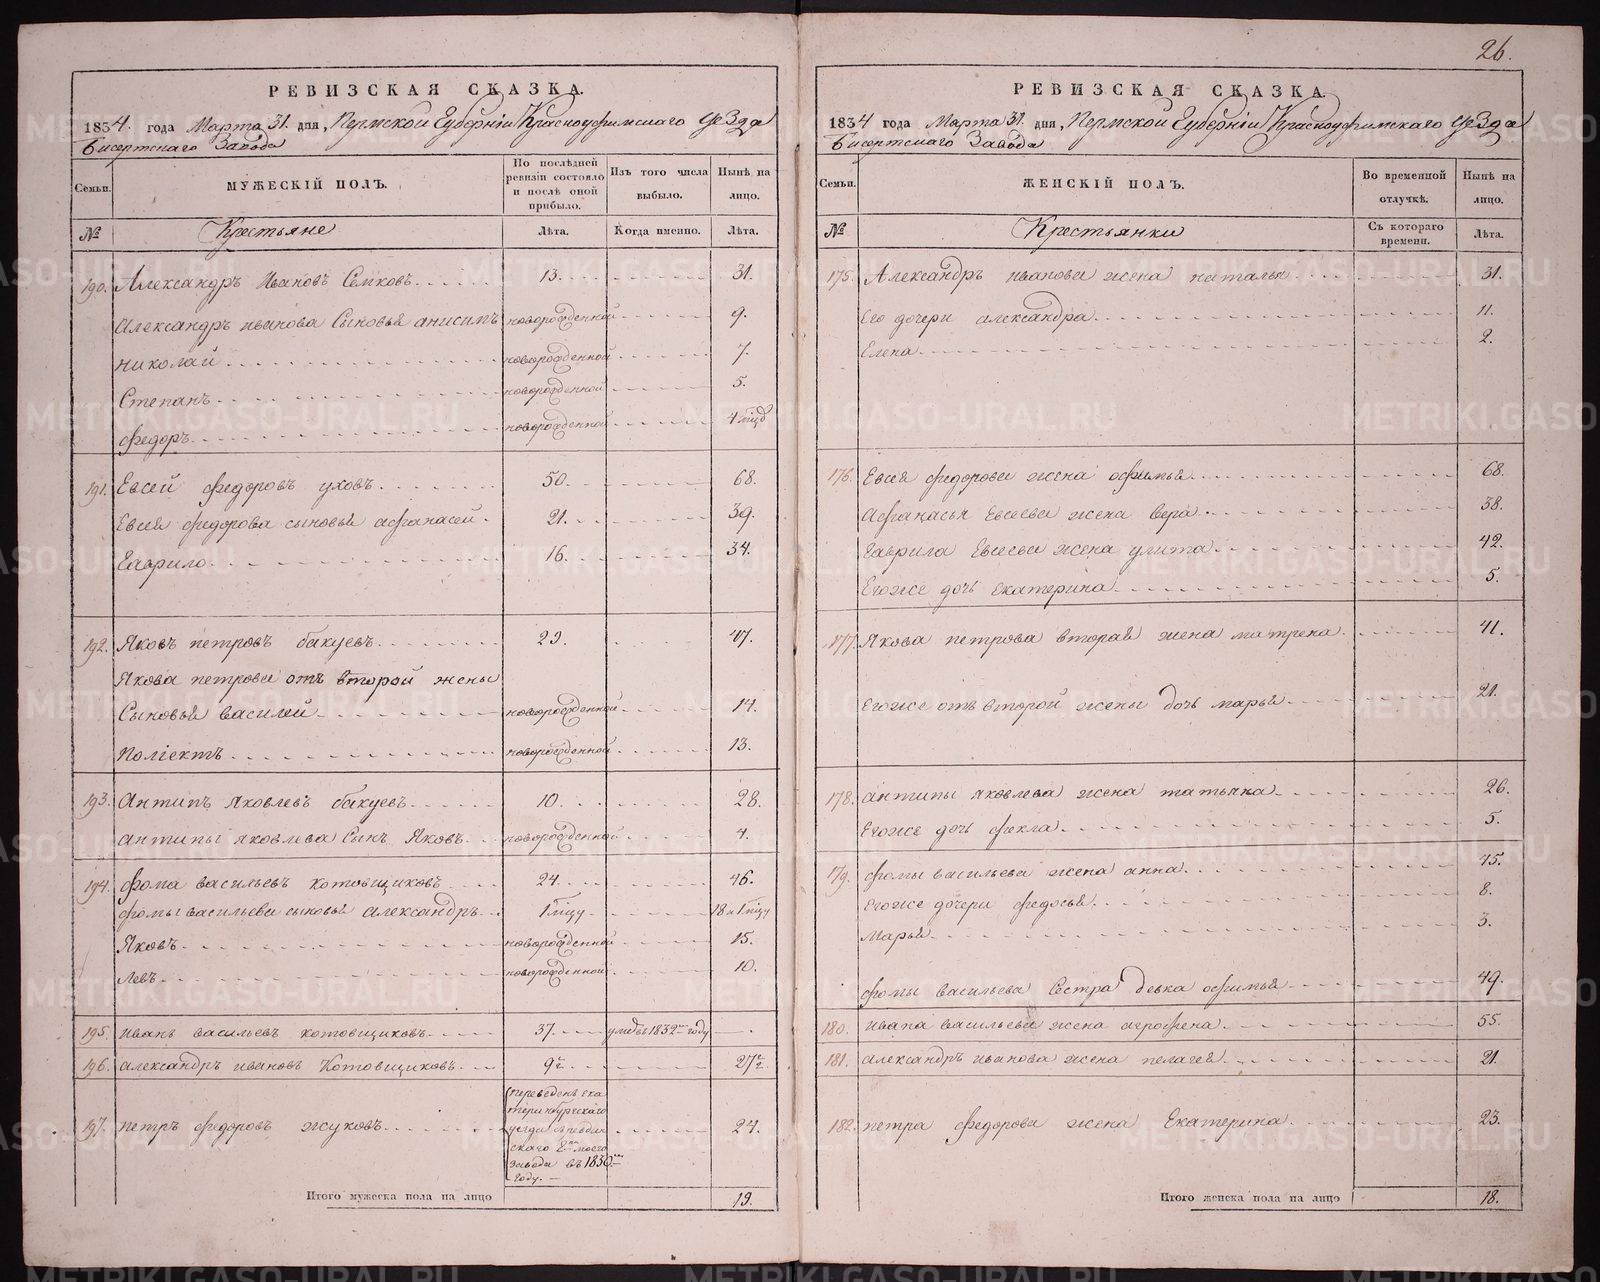 26.
РЕВИЗСКАЯ СКАЗКА.
1834. года Марта 31. дня, Пермской Губерніи Красноуфимскаго уѣзда
Бисертскаго Завода
Семьи. МУЖЕСКІЙ ПОЛЪ. По послѣдней ревизіи состояло и послѣ оной прибыло. Изъ того числа выбыло. Нынѣ на лицо.
№ Крестьяне Лѣта. Когда именно. Лѣта.
190. Александръ Ивановъ Семковъ 13. 31.
Александръ иванова Сыновья анисимъ новорожденной 9.
николай новорожденной 7.
Степанъ новорожденной 5.
федоръ новорожденной 4 мѣц
191. Евсей федоровъ уховъ 50. 68.
Евсея федорова сыновья афанасей 21. 39.
Гаврило 16. 34.
192. Яковъ петровъ бакуевъ 29. 47.
Якова петрова отъ второй жены
Сыновья василей новорожденной 14.
Поліектъ новорожденной 13.
193. Антипъ яковлевъ бакуевъ 10. 28.
антипы яковлева Сынъ Яковъ новорожденной 4.
194. фома васильевъ котовщиковъ 24. 46.
фомы васильева сыновья александръ 1 мѣцу 18 и 1 мѣцу
Яковъ новорожденной 15.
Левъ новорожденной 10.
195. иванъ васильевъ котовщиковъ 37. умре въ 1832 году
196. александръ ивановъ Котовщиковъ 9½ 27½
197. петръ федоровъ жуковъ переведенъ ека
теринбургскаго
уезда съ ревдин
скаго
завода въ 1830
году. 24.
Итого мужеска пола на лицо 19.
РЕВИЗСКАЯ СКАЗКА.
1834 года Марта 31. дня, Пермской Губерніи Красноуфимскаго уѣзда
Бисертскаго Завода
Семьи. ЖЕНСКІЙ ПОЛЪ. Во временной отлучкѣ. Нынѣ на лицо.
№ Крестьянки Съ котораго времени. Лѣта.
175. Александръ иванова жена наталья 31.
Его дочери александра 11.
Елена 2.
176. Евсея федорова жена офимья 68.
Афанасья Евсеева жена вера 38.
Гаврила Евсеева жена улита 42.
Егоже дочь екатерина 5.
177. Якова петрова вторая жена матрена 41.
Егоже отъ второй жены дочь марья 21.
178. антипы яковлева жена татьяна 26.
Егоже дочь фекла 5.
179. фомы васильева жена анна 45.
Егоже дочери федосья 8.
Марья 3.
фомы васильева Сестра девка офимья 49.
180. ивана васильева жена агрофена 55.
181. александръ иванова жена пелагея 21.
182. петра федорова жена Екатерина 23.
Итого женска пола на лицо 18.
METRIKI.GASO-URAL.RU